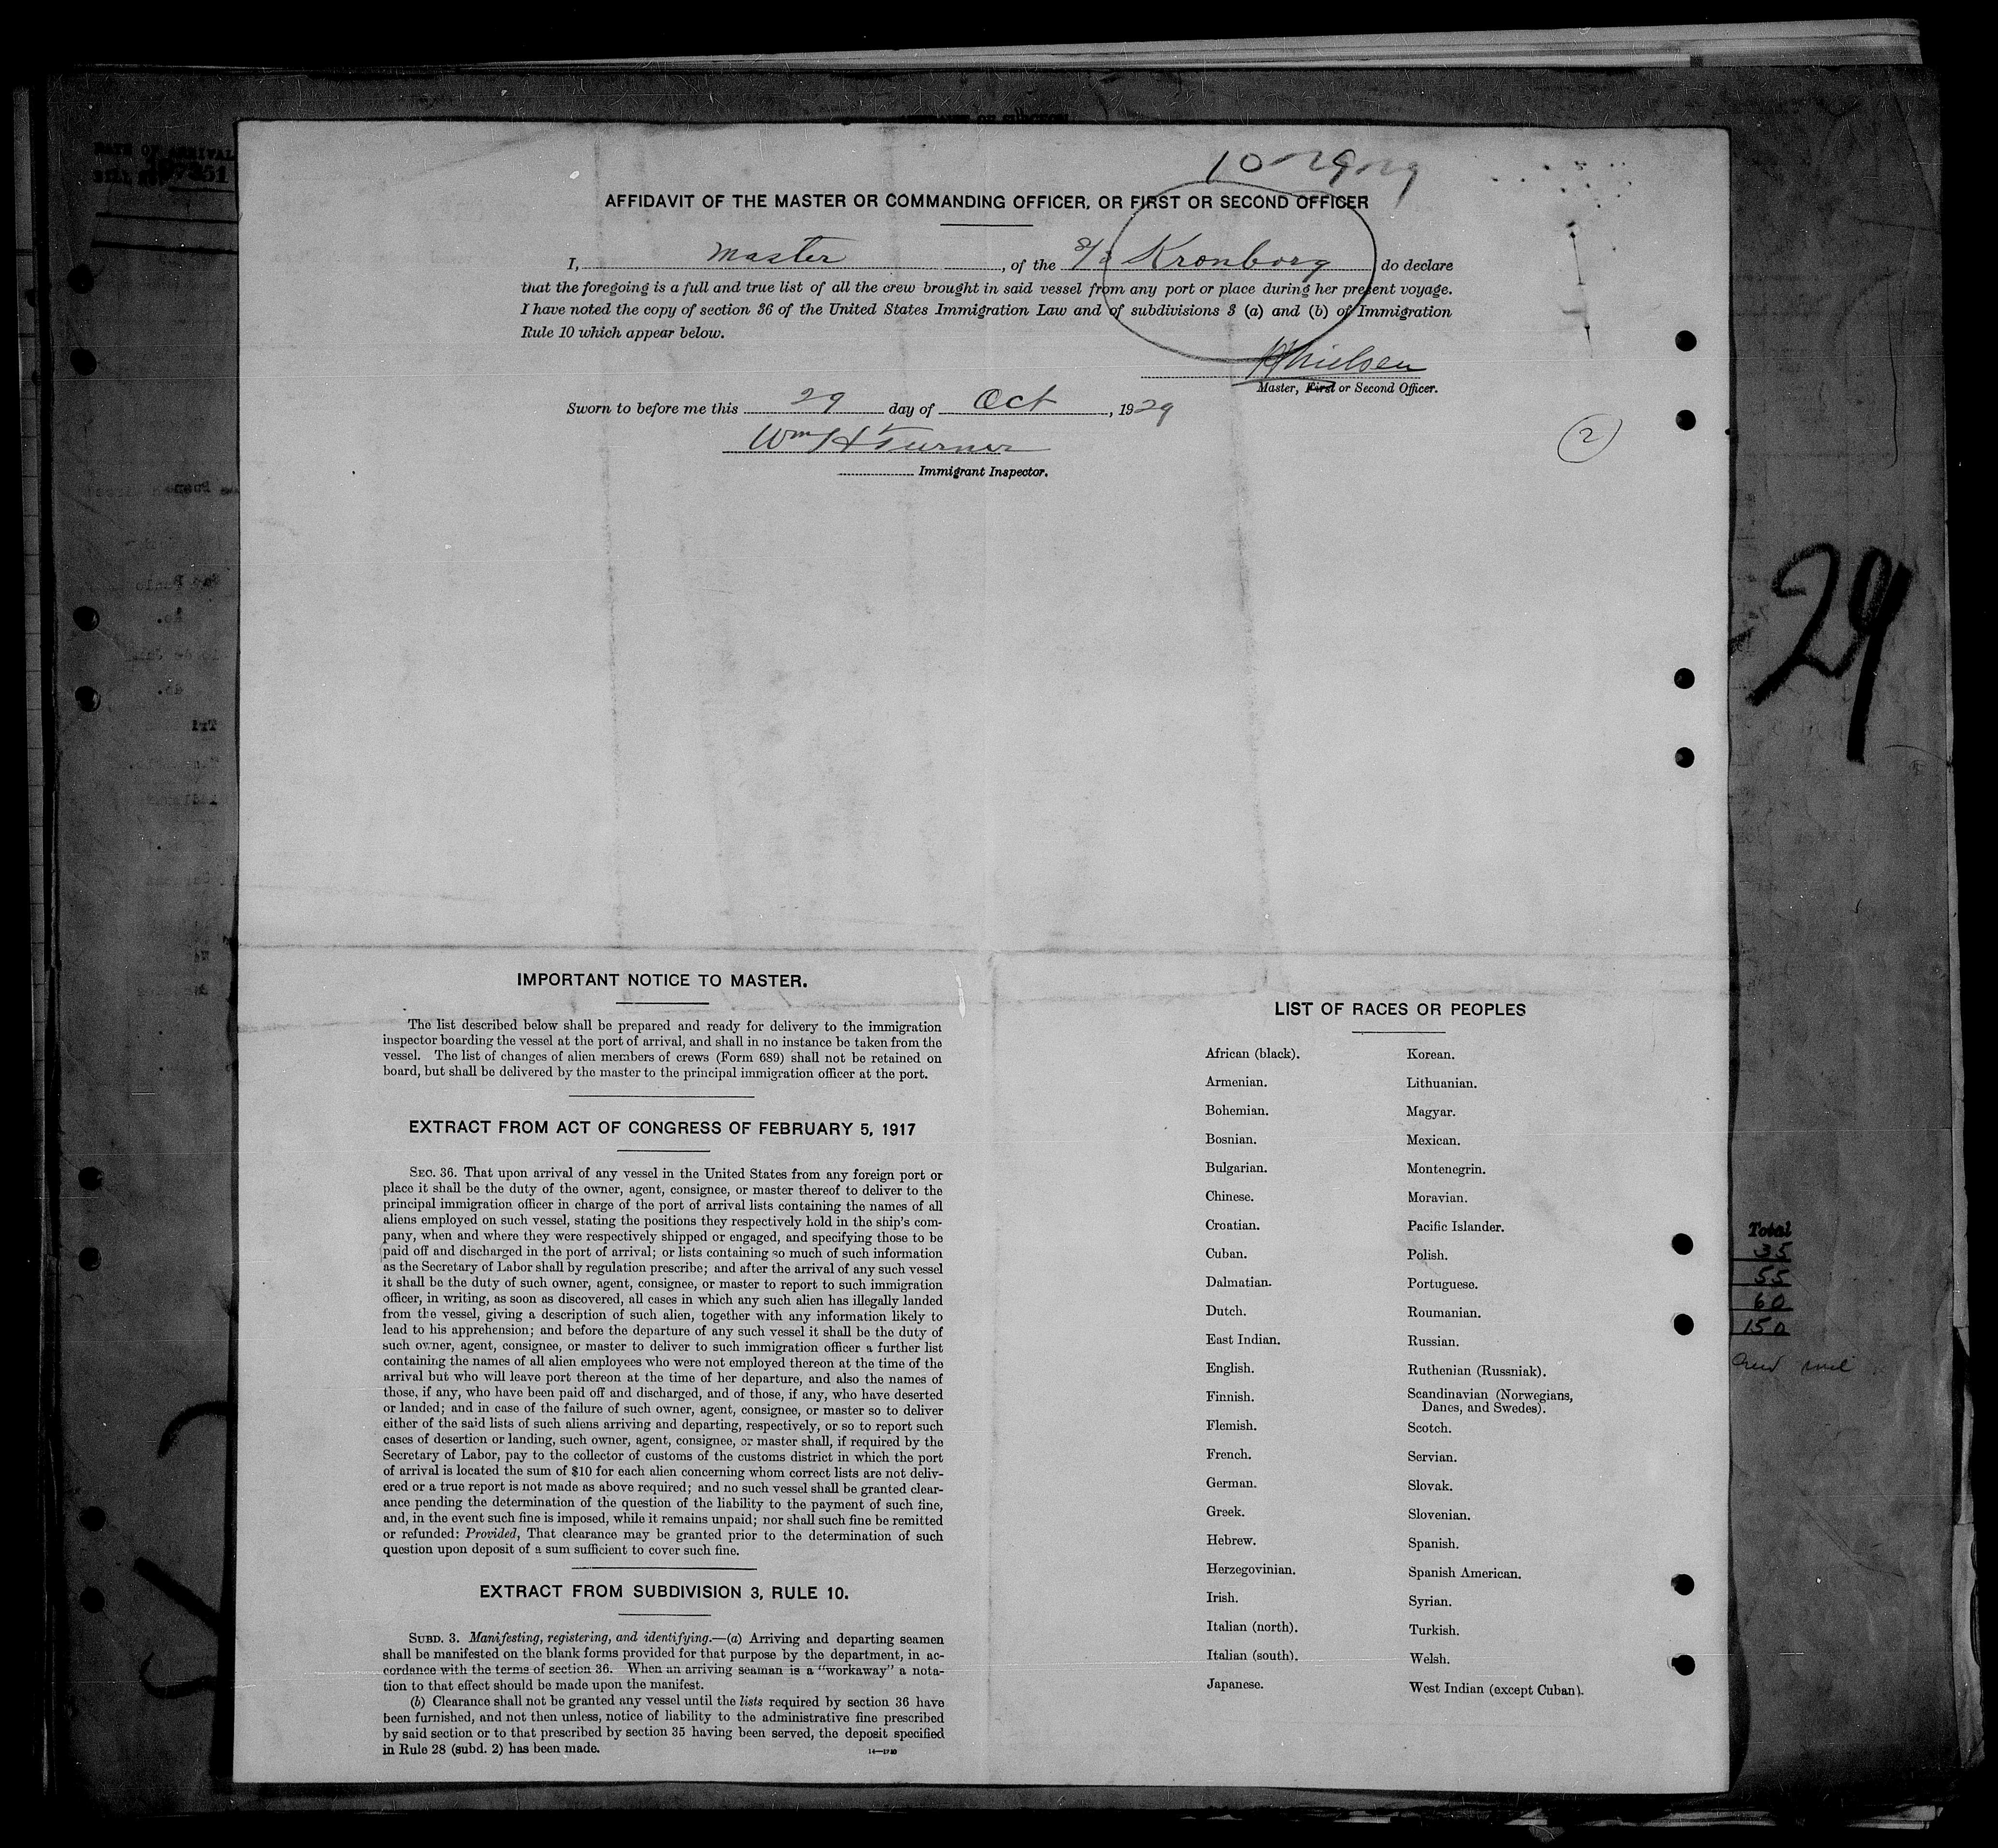 10-29-29
AFFIDAVIT OF THE MASTER OR COMMANDING OFFICER, OR FIRST OR SECOND OFFICER
I, Master, of the S/S Kronborg do declare
that the foregoing is a full and true list of all the crew brought in said vessel from any port or place during her present voyage.
I have noted the copy of section 36 of the United States Immigration Law and of subdivisions 3 (a) and (b) of Immigration
Rule 10 which appear below.
Nielsen
Master, First or Second Officer.
Sworn to before me this 29 day of Oct, 1929
Wm H Turner
Immigrant Inspector.
2
29
IMPORTANT NOTICE TO MASTER.
The list described below shall be prepared and ready for delivery to the immigration
inspector boarding the vessel at the port of arrival, and shall in no instance be taken from the
vessel. The list of changes of alien members of crews (Form 689) shall not be retained on
board, but shall be delivered by the master to the principal immigration officer at the port.
EXTRACT FROM ACT OF CONGRESS OF FEBRUARY 5, 1917
SEC. 36. That upon arrival of any vessel in the United States from any foreign port or
place it shall be the duty of the owner, agent, consignee, or master thereof to deliver to the
principal immigration officer in charge of the port of arrival lists containing the names of all
aliens employed on such vessel, stating the positions they respectively hold in the ship's com-
pany, when and where they were respectively shipped or engaged, and specifying those to be
paid off and discharged in the port of arrival; or lists containing so much of such information
as the Secretary of Labor shall by regulation prescribe; and after the arrival of any such vessel
it shall be the duty of such owner, agent, consignee, or master to report to such immigration
officer, in writing, as soon as discovered, all cases in which any such alien has illegally landed
from the vessel, giving a description of such alien, together with any information likely to
lead to his apprehension; and before the departure of any such vessel it shall be the duty of
such owner, agent, consignee, or master to deliver to such immigration officer a further list
containing the names of all alien employees who were not employed thereon at the time of the
arrival but who will leave port thereon at the time of her departure, and also the names of
those, if any, who have been paid off and discharged, and of those, if any, who have deserted
or landed; and in case of the failure of such owner, agent, consignee, or master so to deliver
either of the said lists of such aliens arriving and departing, respectively, or so to report such
cases of desertion or landing, such owner, agent, consignee, or master shall, if required by the
Secretary of Labor, pay to the collector of customs of the customs district in which the port
of arrival is located the sum of $10 for each alien concerning whom correct lists are not deliv-
ered or a true report is not made as above required; and no such vessel shall be granted clear-
ance pending the determination of the question of the liability to the payment of such fine,
and, in the event such fine is imposed, while it remains unpaid; nor shall such fine be remitted
or refunded: Provided, That clearance may be granted prior to the determination of such
question upon deposit of a sum sufficient to cover such fine.
EXTRACT FROM SUBDIVISION 3, RULE 10.
SUBD. 3. Manifesting, registering, and identifying.—(a) Arriving and departing seamen
shall be manifested on the blank forms provided for that purpose by the department, in ac-
cordance with the terms of section 36. When an arriving seaman is a "workaway" a nota-
tion to that effect should be made upon the manifest.
(b) Clearance shall not be granted any vessel until the lists required by section 36 have
been furnished, and not then unless, notice of liability to the administrative fine prescribed
by said section or to that prescribed by section 35 having been served, the deposit specified
in Rule 28 (subd. 2) has been made.
LIST OF RACES OR PEOPLES
African (black).
Armenian.
Bohemian.
Bosnian.
Bulgarian.
Chinese.
Croatian.
Cuban.
Dalmatian.
Dutch.
East Indian.
English.
Finnish.
Flemish.
French.
German.
Greek.
Hebrew.
Herzegovinian.
Irish.
Italian (north).
Italian (south).
Japanese.
Korean.
Lithuanian.
Magyar.
Mexican.
Montenegrin.
Moravian.
Pacific Islander.
Polish.
Portuguese.
Roumanian.
Russian.
Ruthenian (Russniak).
Scandinavian (Norwegians,
Danes, and Swedes).
Scotch.
Servian.
Slovak.
Slovenian.
Spanish.
Spanish American.
Syrian.
Turkish.
Welsh.
West Indian (except Cuban).
Total
35
55
60
150